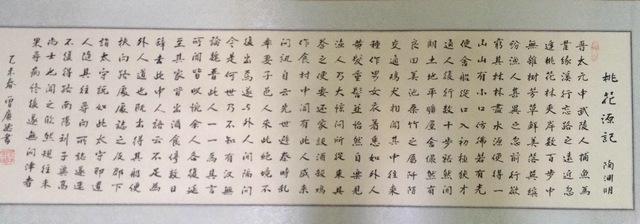 桃花源記 陶淵明
晉太元中武陵人捕魚為
業緣溪行忘路之遠近忽
逢桃花林夾岸數百步中
無雜樹芳草鮮美落英繽
紛漁人甚異之復前行欲
窮其林林盡水源便得一
山山有小口仿佛若有光
便舍船從口入初極狹才
通人復行數十步豁然開
朗土地平曠屋舍儼然有
良田美池桑竹之屬阡陌
交通鷄犬相聞其中往來
種作男女衣著悉如外人
黃髮垂髫並怡然自樂見
漁人乃大驚問所從來具
答之便要還家設酒殺鷄
作食村中聞有此人咸來
問訊自云先世避秦時亂
率妻子邑人來此絕境不
復出焉遂與外人間隔問
今是何世乃不知有漢無
論魏晉此人一一為具言
所聞皆嘆惋餘人各復延
至其家皆出酒食停數日
辭去此中人語云不足為
外人道也既出得其船便
扶向路處處誌之及郡下
詣太守說如此太守即遣
人隨其往尋向所誌遂迷
不復得路南陽劉子驥高
尚士也聞之欣然規往未
果尋病終後遂無問津者
乙未春